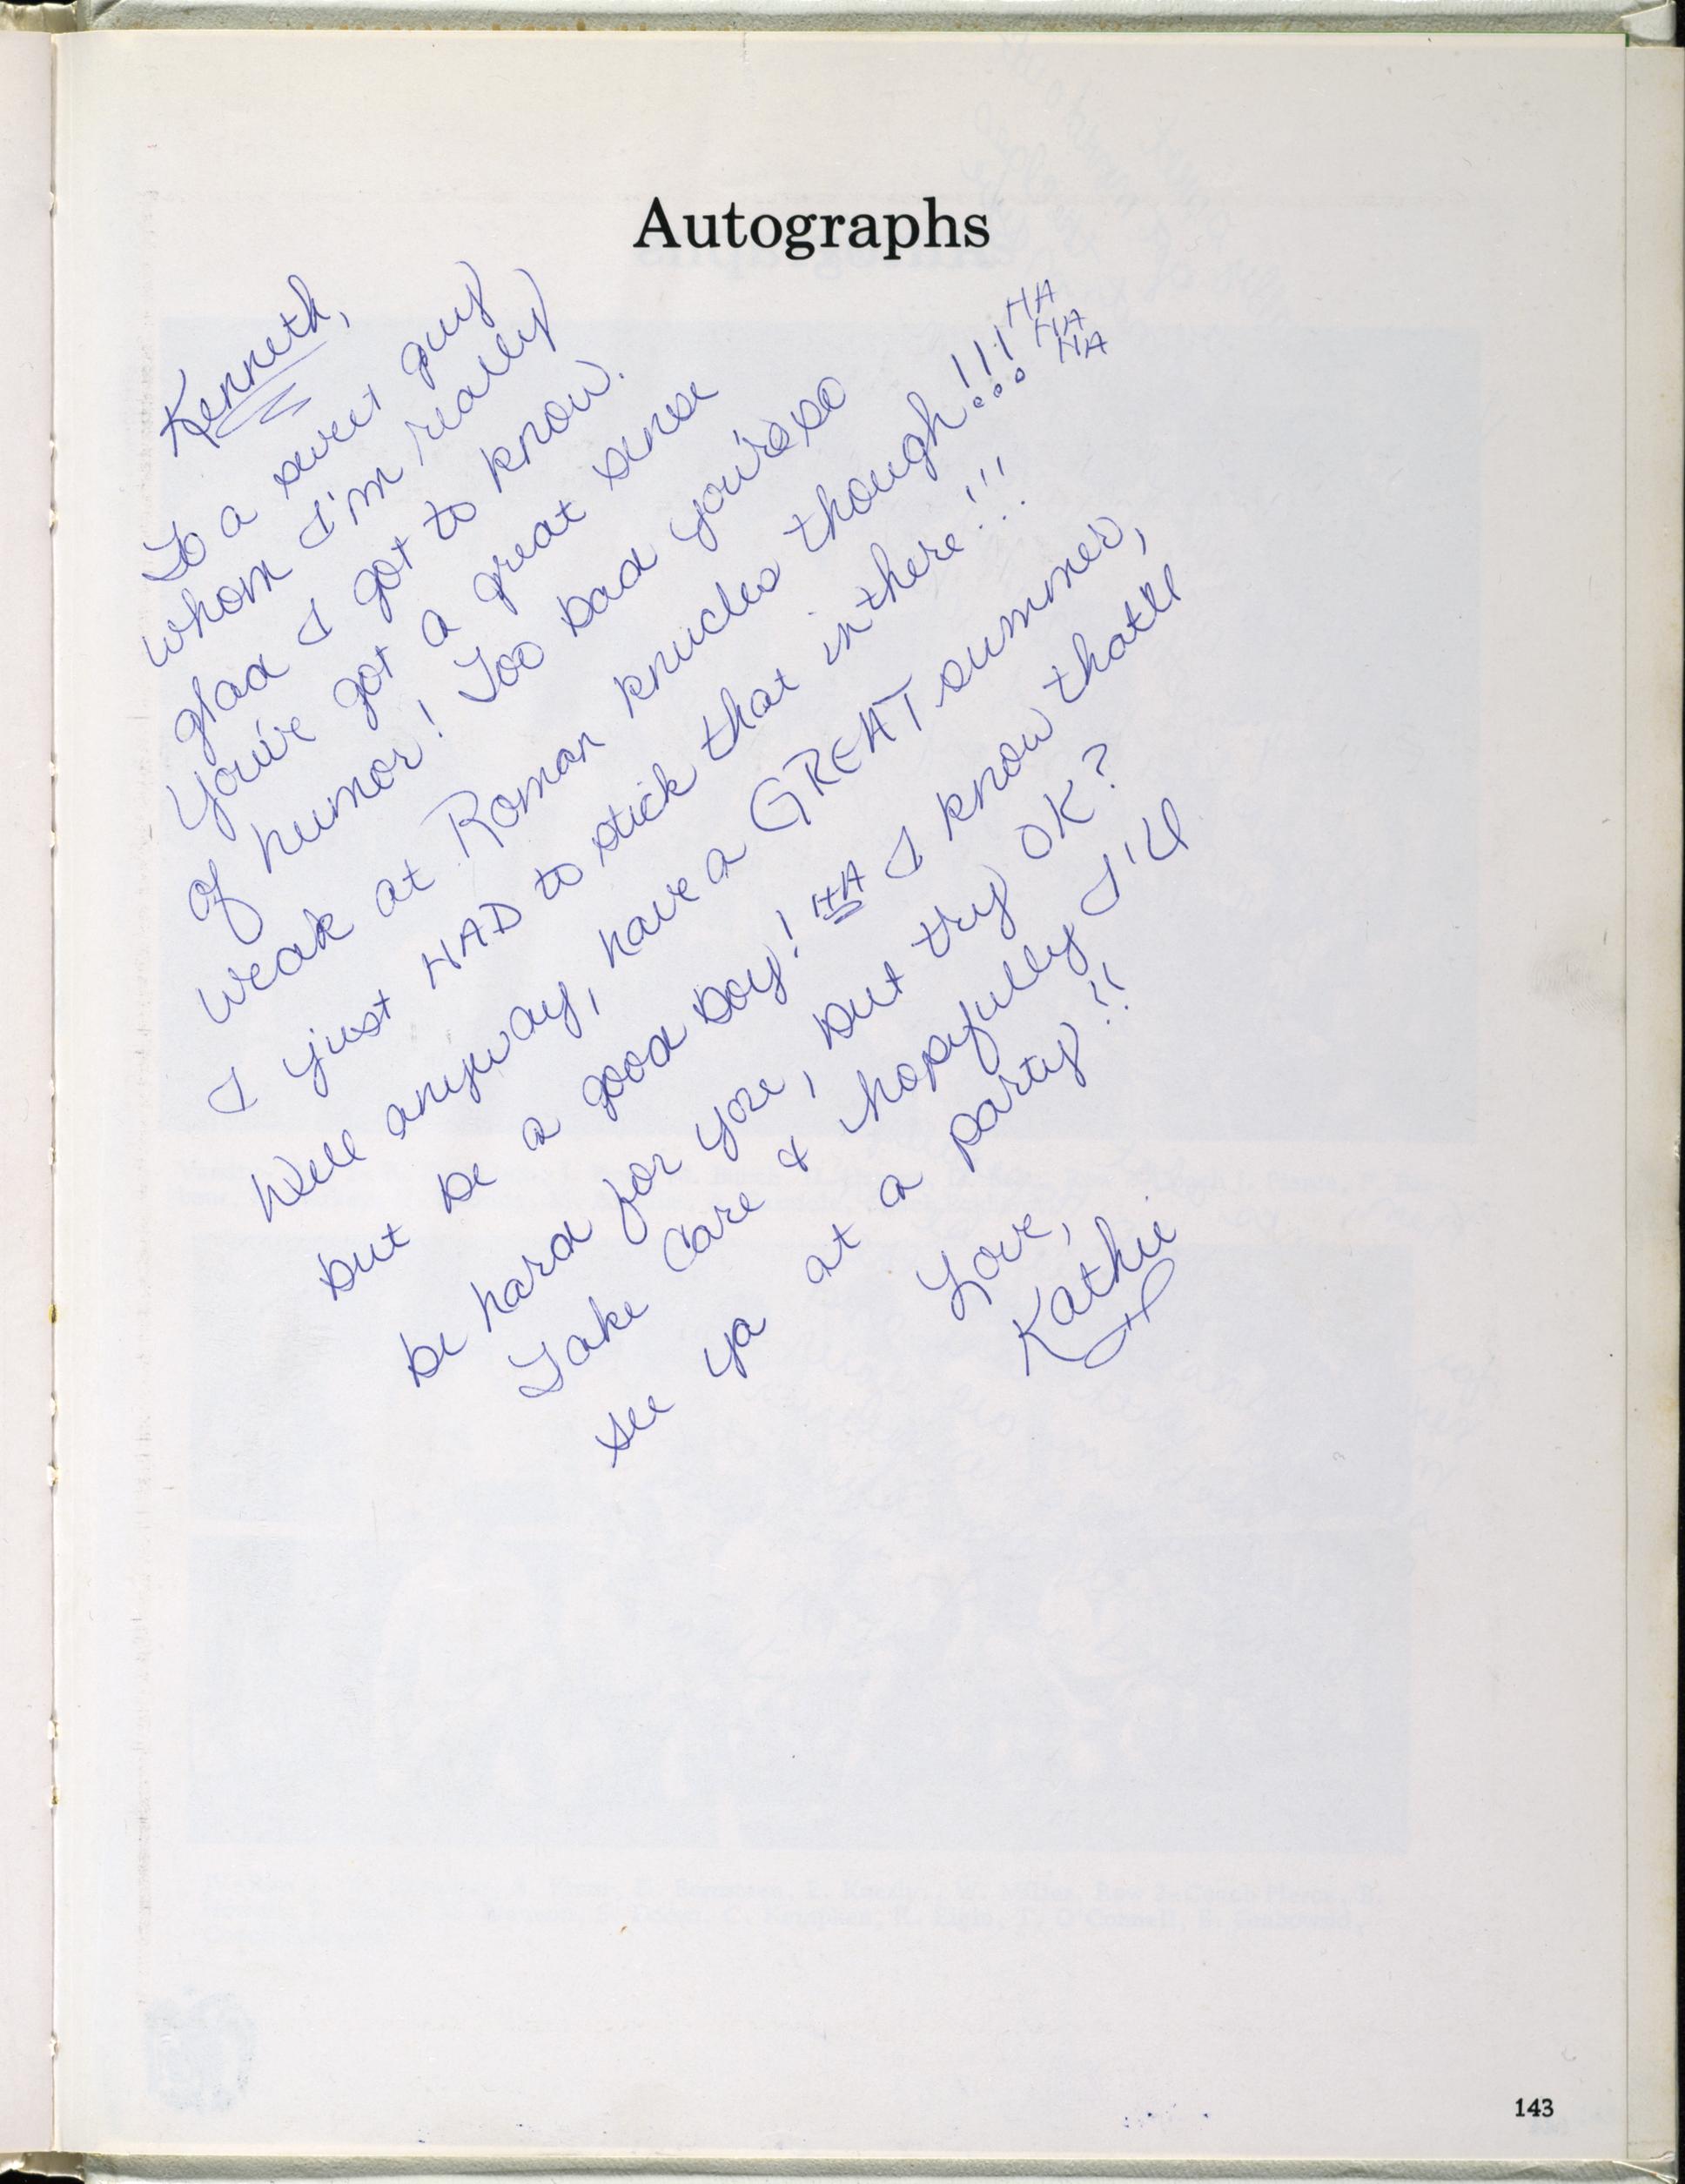 Autographs
Kenneth,
To a sweet guy
whom I'm really
glad I got to know.
You've got a great sense
of humor! Too bad you're so
weak at Roman knucles though!!! HA
HA
HA
I just HAD to stick that in there!!!
Well anyway, have a GREAT summer,
but be a good boy! HA I know thatll
be hard for you, but try OK?
Take Care & hopefully I'll
see ya at a party!!
Love,
Kathie
143